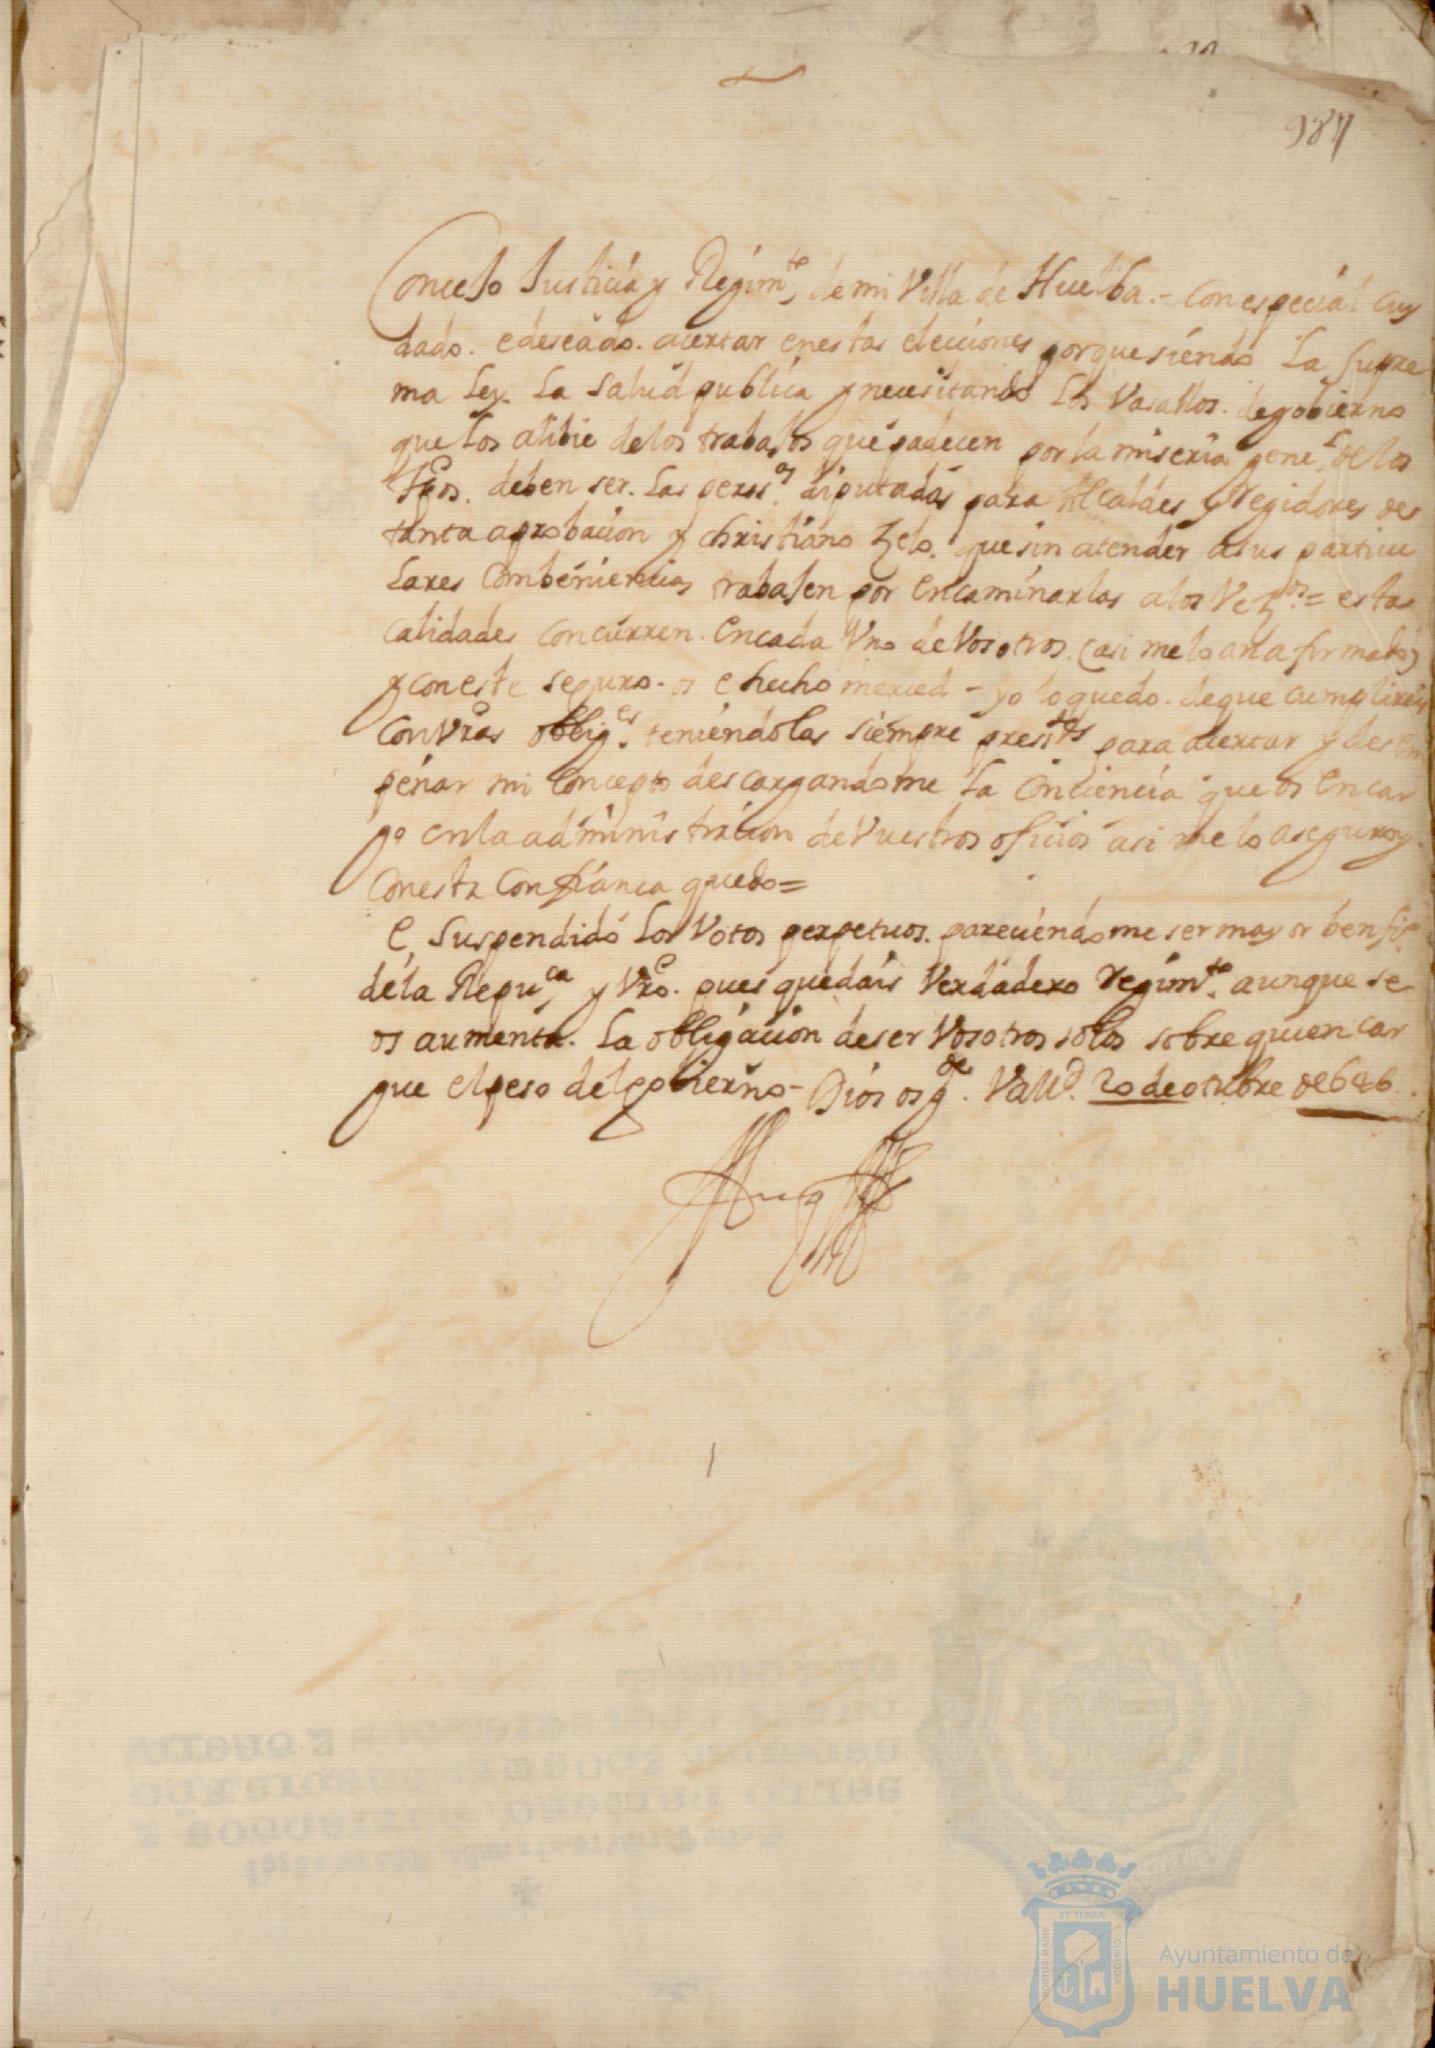 987
Concejo Justicia y Regim.to de mi Villa de Huelba.- Con especial cuy
dado. e deseado. acertar en estas elecciones porque siendo La supre
ma Ley. La Salud publica y necesitando Los Vasallos. de gobierno
que los alibie de los trabajos que padecen por la miseria gene.l de los
tpos. deben ser. Las perss.as diputadas para Alcaldes y Regidores de
tanta aprobacion y christiano zelo. que sin atender a sus particu
lares Combeniencias trabajen por encaminarlas a los Vez.os = estas
calidades concurren. en cada Vno de Vosotros. (asi me lo an afirmado)
y con este seguro. os e hecho merced - yo lo quedo. de que cumplireis
con Vras obblig.es teniendolas siempre pres.tes para acertar y desem
peñar mi concepto descargandome La Conciencia que os encar
go en la administracion de Vuestros oficios asi me lo aseguro y.
Con esta Confianca quedo=
E, suspendido Los Votos perpetuos. pareciendome ser mayor benfi.o
de la Repu.ca y Vro. pues quedais Verdadero regim.to aunque se
os aumenta. La obligacion de ser Vosotros solos sobre quien car
gue el peso del gobierno- Dios os g.de Vall.d 20 de otubre de 646
ET TERRÆ
PORTUS MARIS
CUSTODIA
Ayuntamiento de
HUELVA